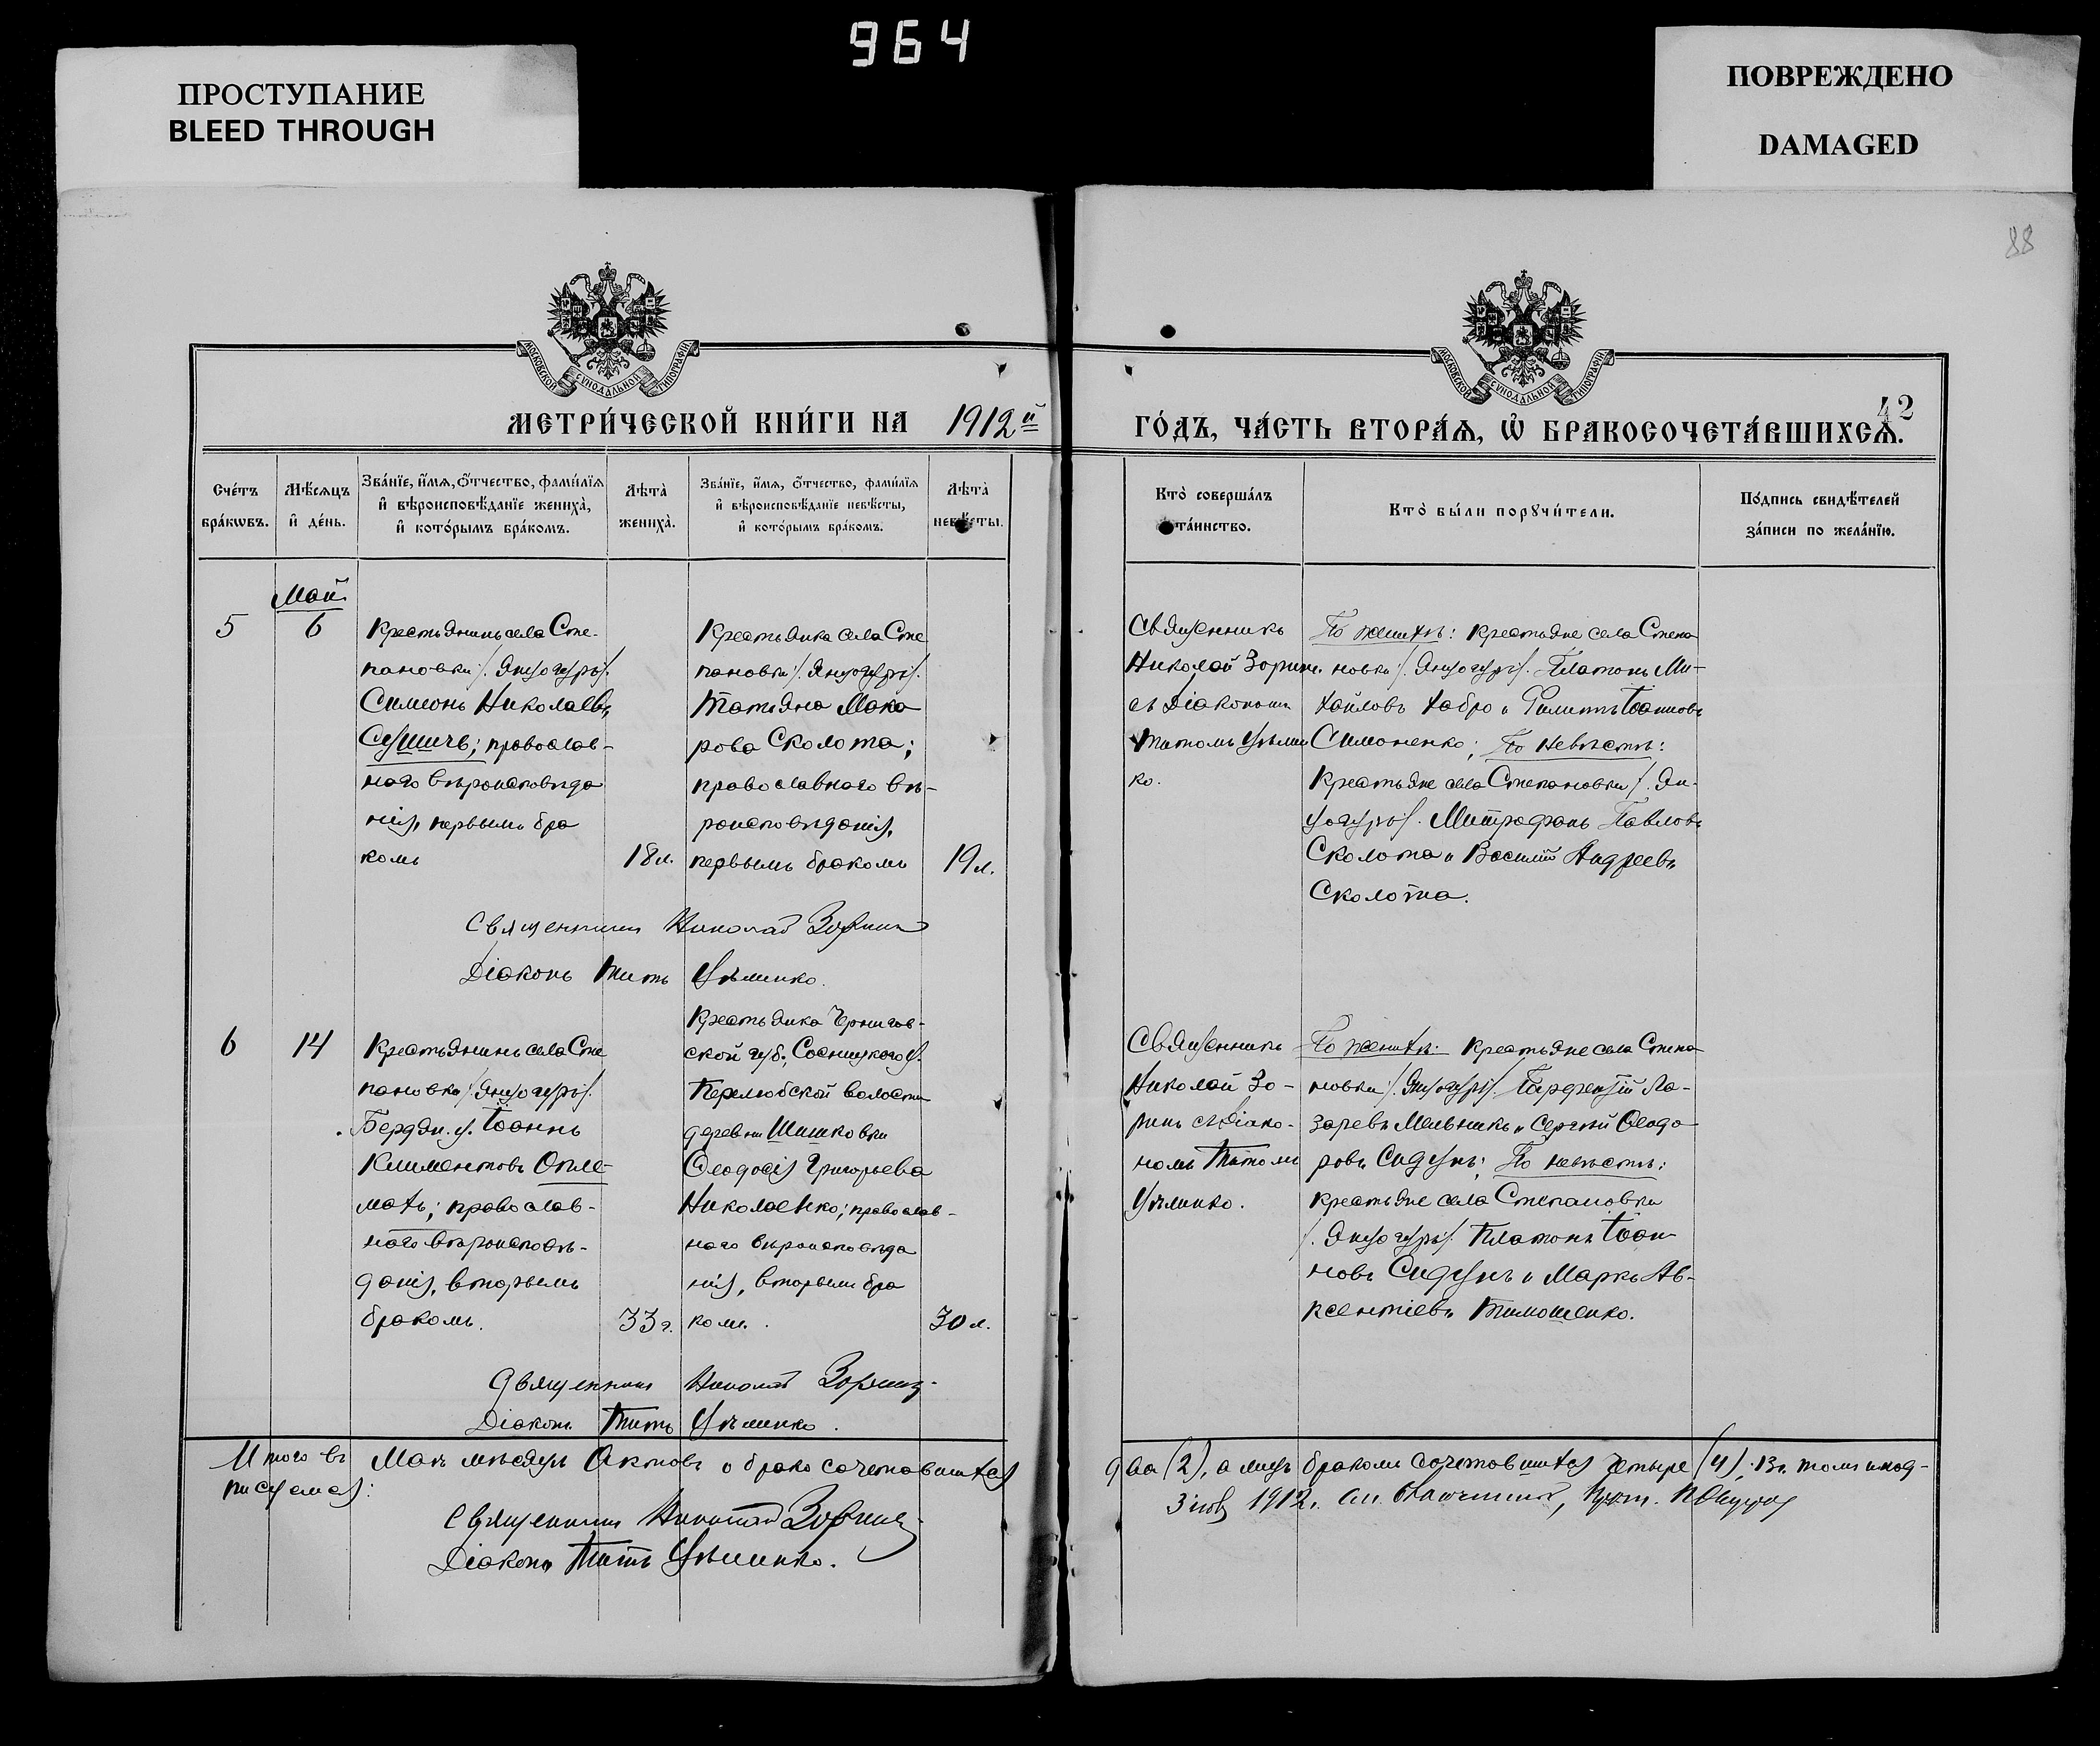 964
ПРОСТУПАНИЕ
BLEED THROUGH
ПОВРЕЖДЕНО
DAMAGED
88
МОСКОВСКОЙ СѴНОДАЛЬНОЙ ТИПОГРАФІИ
МОСКОВСКОЙ СѴНОДАЛЬНОЙ ТИПОГРАФІИ
42
МЕТРИ́ЧЕСКОЙ КНИ́ГИ НА 1912й
ГО́ДЪ, ЧА́СТЬ ВТОРА́Я, Ѡ БРАКОСОЧЕТА́ВШИХСЯ.
Сче́тъ
бра́кѡвъ.
Мѣ́сяцъ
и҆ де́нь.
Зва́нїе, и҆́мя, ѻ҆́тчество, фами́лїя
и҆ вѣроисповѣ́данїе жениха̀,
и҆ кото́рымъ бра́комъ.
Лѣта̀
жениха̀.
Зва́нїе, и҆́мя, ѻ҆́тчество, фами́лїя
и҆ вѣроисповѣ́данїе невѣ́сты,
и҆ кото́рымъ бра́комъ.
Лѣта̀
невѣ́сты.
Кто̀ соверша́лъ
та́инство.
Кто̀ бы́ли порꙋчи́тели.
По́дпись свидѣ́телей
за́писи по жела́нїю.
Май
5
6
Крестьянинъ села Сте-
пановки /. Янцогуръ /.
Симеонъ Николаевъ
православ-
наго вѣроисповѣда
нія, первымъ бра
комъ
18 л.
Крестьянка села Сте
пановки /. Янцогуръ /.
Татьяна Мака
рова Сколота;
православнаго вѣ-
роисповѣданія,
первымъ бракомъ
19 л.
Священникъ
Николай Зоринъ
съ Діакономъ
Титомъ
ко.
По женихѣ: крестьяне села Степа
новки /. Янцогуръ /. Платонъ Ми-
хайловъ Хабро и Филиппъ Іоанновъ
Симоненко; По невѣстѣ:
Крестьяне села Степановки /. Ян-
цогуръ /. Митрофанъ Павловъ
Сколота и Василій Андреевъ
Сколота.
Священникъ Николай Зоринъ
Діаконъ Титъ
6
14
Крестьянинъ села Сте
пановки /. Янцогуръ /.
Бердян. у. Іоаннъ
Климентовъ
православ-
наго вѣроисповѣ-
данія, вторымъ
бракомъ.
33 г.
Крестьянка Чернигов-
ской губ., Сосницкаго у.
Перелюбской волости
деревни Шишковки
Ѳеодосія Григорьева
Николаенко; православ-
наго вѣроисповѣда
нія, вторымъ бра
комъ.
30 л.
Священникъ
Николай Зо-
ринъ съ Діако-
номъ Титомъ
По женихѣ: Крестьяне села Степа
новки /. Янцогуръ /. Парфентій Ла-
заревъ Мельникъ и Сергій Ѳеодо
ровъ Сидунъ; По невѣстѣ:
крестьяне села Степановки
/. Янцогуръ /. Платонъ Іоан
новъ Сидунъ и Маркъ Ав-
ксентіевъ Тимошенко.
Священникъ Николай Зоринъ
Діаконъ Титъ
Итого въ Маѣ мѣсяцѣ Актовъ о бракосочетавшихся
два (2), а лицъ бракомъ сочетавшихся четыре (4). Въ томъ и под-
писуемся:
1912.
Священникъ Николай Зоринъ
Діаконъ Титъ